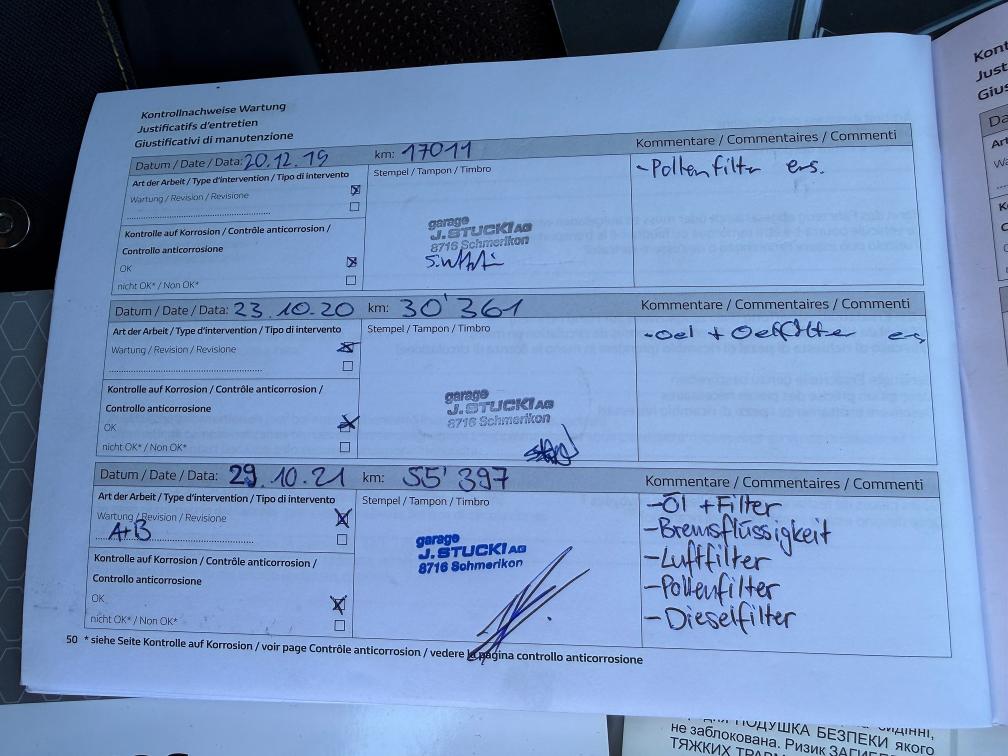 Kontrollnachweise Wartung
Justificatifs d'entretien
Giustificativi di manutenzione
Datum / Date / Data: 20.12.19 km: 17011 Kommentare / Commentaires / Commenti
Art der Arbeit / Type d'intervention / Tipo di intervento
Stempel / Tampon / Timbro
-Pollenfilter ers.
Wartung / Revision / Revisione
Kontrolle auf Korrosion / Contrôle anticorrosion /
Controllo anticorrosione
OK
nicht OK* / Non OK*
garage
J. STUCKI AG
8716 Schmerikon
Datum / Date / Data: 23.10.20 km: 30'361 Kommentare / Commentaires / Commenti
Art der Arbeit / Type d'intervention / Tipo di intervento
Stempel / Tampon / Timbro
-Oel + Oelfilter ers
Wartung / Revision / Revisione
Kontrolle auf Korrosion / Contrôle anticorrosion /
Controllo anticorrosione
OK
nicht OK* / Non OK*
garage
J. STUCKI AG
8716 Schmerikon
Datum / Date / Data: 29.10.21 km: 55'397 Kommentare / Commentaires / Commenti
Art der Arbeit / Type d'intervention / Tipo di intervento
Stempel / Tampon / Timbro
Wartung / Revision / Revisione
A+B
Kontrolle auf Korrosion / Contrôle anticorrosion /
Controllo anticorrosione
OK
nicht OK* / Non OK*
garage
J. STUCKI AG
8716 Schmerikon
-Öl + Filter
-Bremsflüssigkeit
-Luftfilter
-Pollenfilter
-Dieselfilter
50 * siehe Seite Kontrolle auf Korrosion / voir page Contrôle anticorrosion / vedere la pagina controllo anticorrosione
ПОДУШКА БЕЗПЕКИ якого
не заблокована. Ризик
ТЯЖКИХ